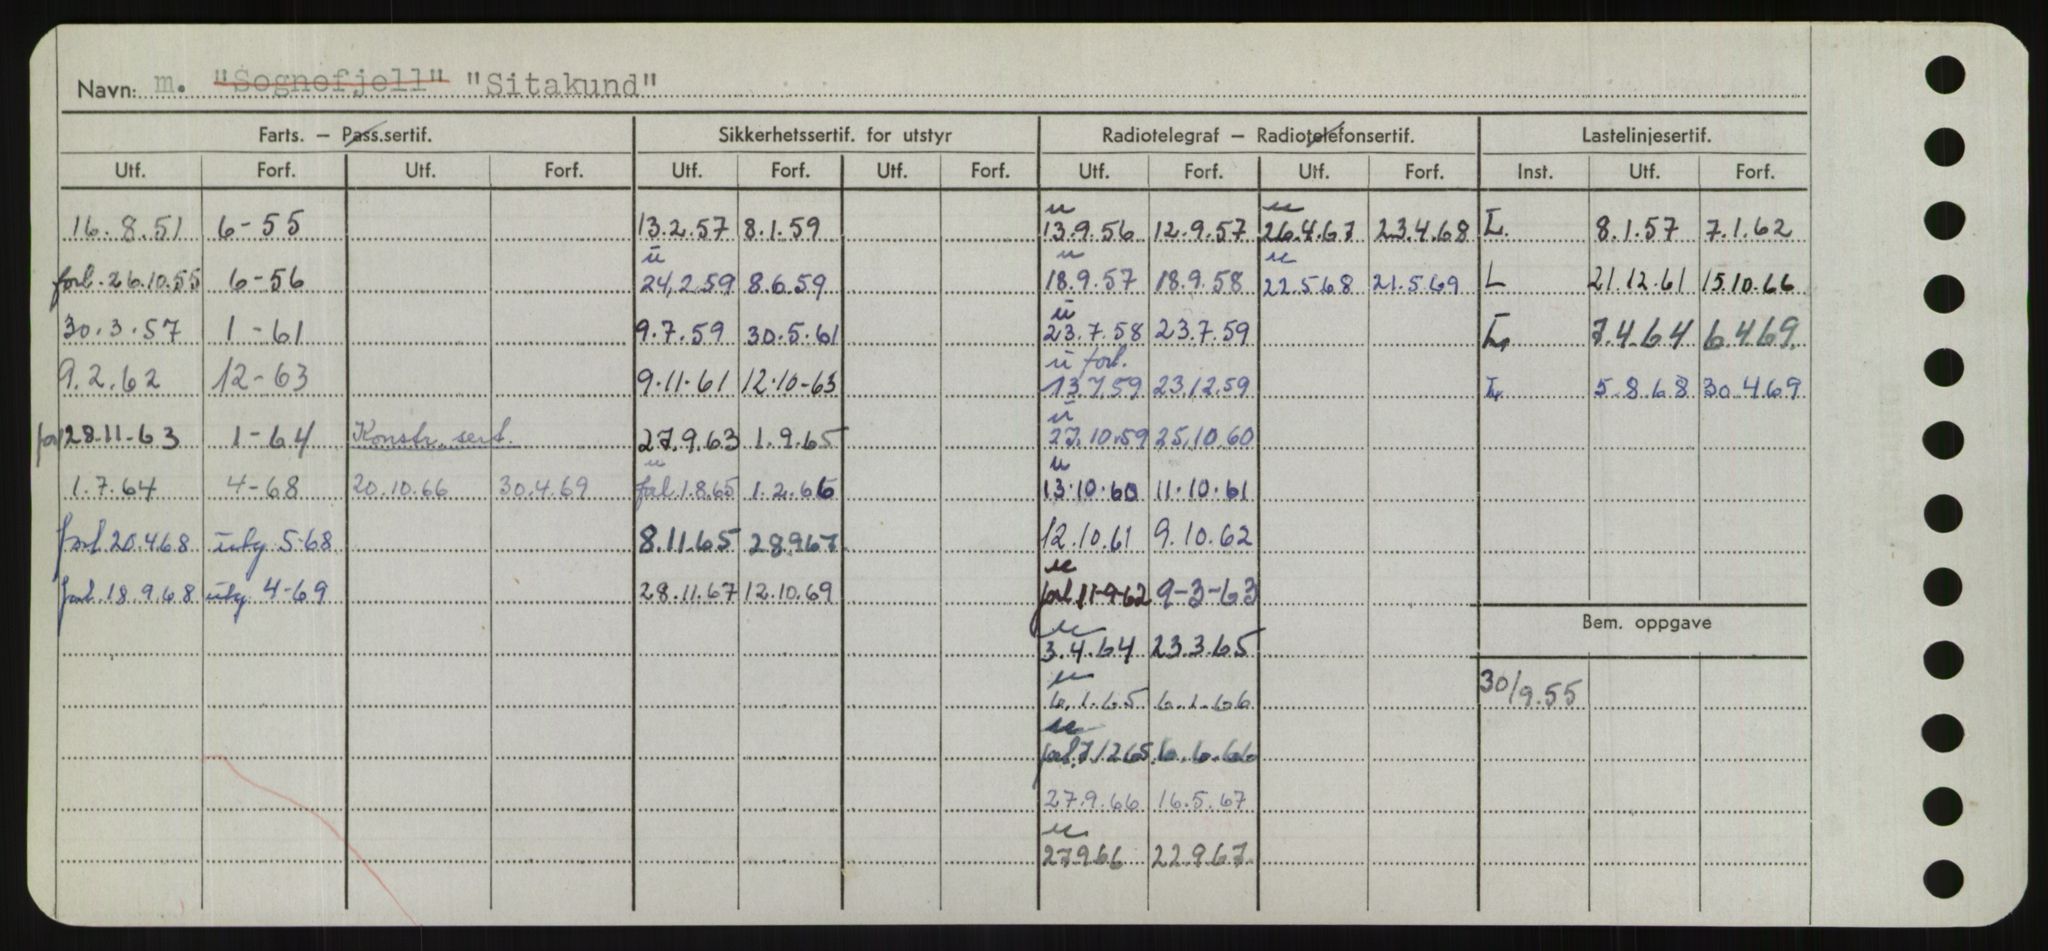 Navn: m. "Sognefjell" "Sitakund"
Farts. — Pass.sertif. Sikkerhetssertif. for utstyr Radiotelegraf — Radiotelefonsertif. Lastelinjesertif.
Utf. Forf. Utf. Forf. Utf. Forf. Utf. Forf. Utf. Forf. Utf. Forf. Inst. Utf. Forf.
u u
16.8.51 6-55 13.2.57 8.1.59 13.9.56 12.9.57 26.4.67 23.4.68 L. 8.1.57 7.1.62
u u u
forl. 26.10.55 6-56 24.2.59 8.6.59 18.9.57 18.9.58 22.5.68 21.5.69 L 21.12.61 15.10.66
u
30.3.57 1-61 9.7.59 30.5.61 23.7.58 23.7.59 L 7.4.64 6.4.69.
u forl.
9.2.62 12-63 9.11.61 12.10-63 13.7.59 23.12.59 L 5.8.68 30.4.69
u
forl 28.11-63 1-64 Konstr. sert. 27.9.63 1.9.65 27.10.59 25.10.60
u u
1.7.64 4-68 20.10.66 30.4.69 forl 1.8.65 1.2.66 13.10.60 11.10.61
forl 20.4.68 utg 5-68 8.11.65 28.9.67 12.10.61 9.10.62
u
forl. 18.9.68 utg 4-69 28.11.67 12.10.69 forl 11-9-62 9-3-63
Bem. oppgave
u
3.4.64 23.3.65
u
6.1.65 6.1.66 30/9.55
u
forl. 7/12 65 6.6.66
27.9.66 16.5.67
u
27.9.66 22.9.67